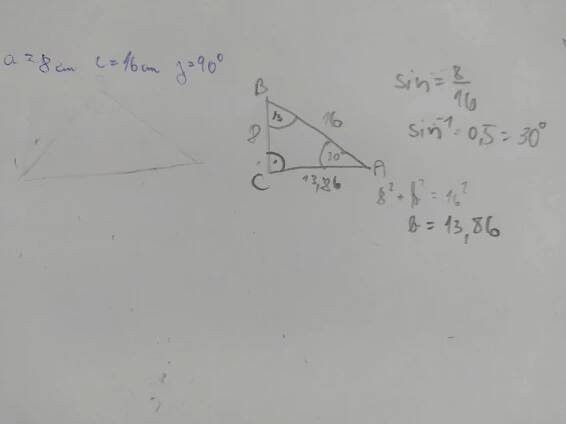 a = 8 cm c = 16 cm γ = 90°
B
8
16
30°
A
C
13,86
sin = 8/16
sin⁻¹ = 0,5 = 30°
8² + b² = 16²
b = 13,86